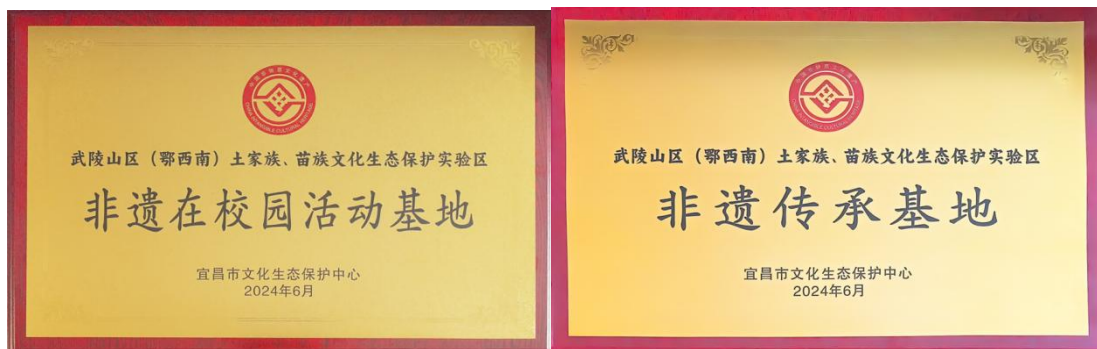 武陵山区（鄂西南）土家族、苗族文化生态保护实验区
非遗在校园活动基地
宜昌市文化生态保护中心
2024年6月
武陵山区（鄂西南）土家族、苗族文化生态保护实验区
非遗传承基地
宜昌市文化生态保护中心
2024年6月